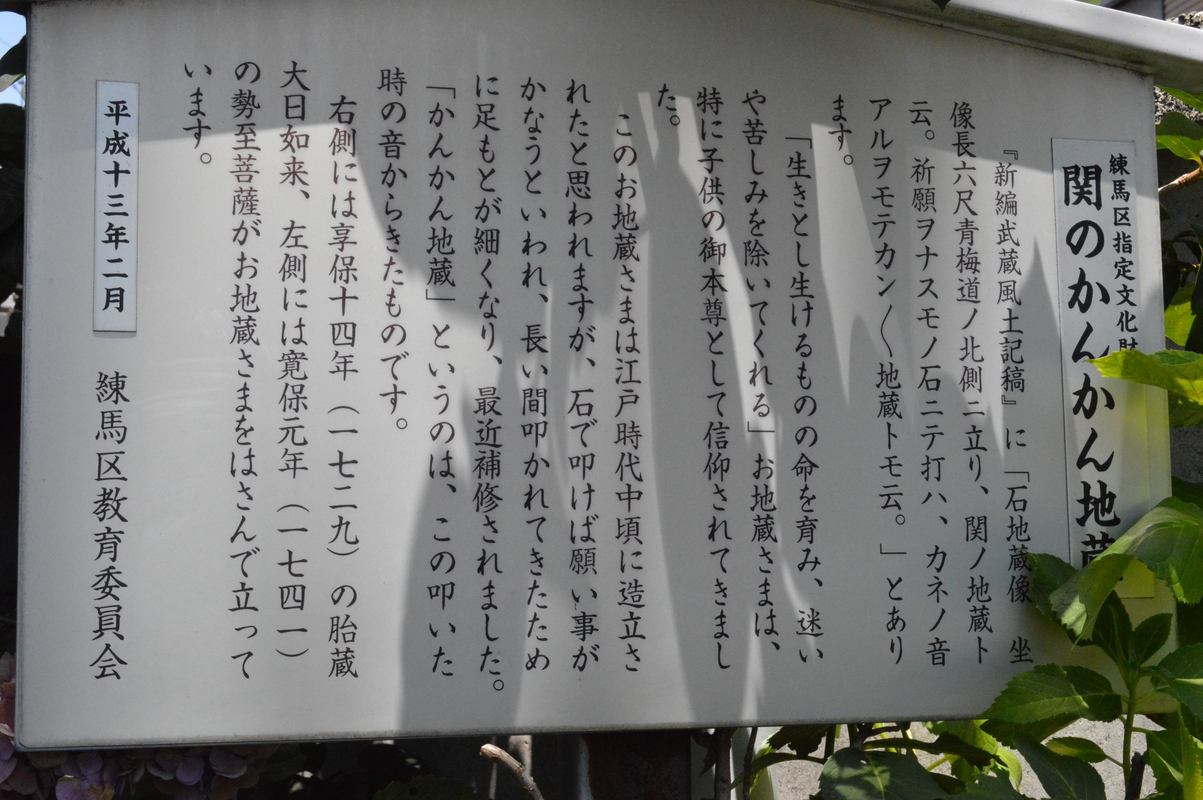 練馬区指定文化財
関のかんかん地蔵
『新編武蔵風土記稿』に「石地蔵像　坐
像長六尺青梅道ノ北側ニ立り、関ノ地蔵ト
云。祈願ヲナスモノ石ニテ打ハ、カネノ音
アルヲモテカン〱地蔵トモ云。」とあり
ます。
「生きとし生けるものの命を育み、迷い
や苦しみを除いてくれる」お地蔵さまは、
特に子供の御本尊として信仰されてきまし
た。
このお地蔵さまは江戸時代中頃に造立さ
れたと思われますが、石で叩けば願い事が
かなうといわれ、長い間叩かれてきたため
に足もとが細くなり、最近補修されました。
「かんかん地蔵」というのは、この叩いた
時の音からきたものです。
右側には享保十四年（一七二九）の胎蔵
大日如来、左側には寛保元年（一七四一）
の勢至菩薩がお地蔵さまをはさんで立って
います。
平成十三年二月
練馬区教育委員会